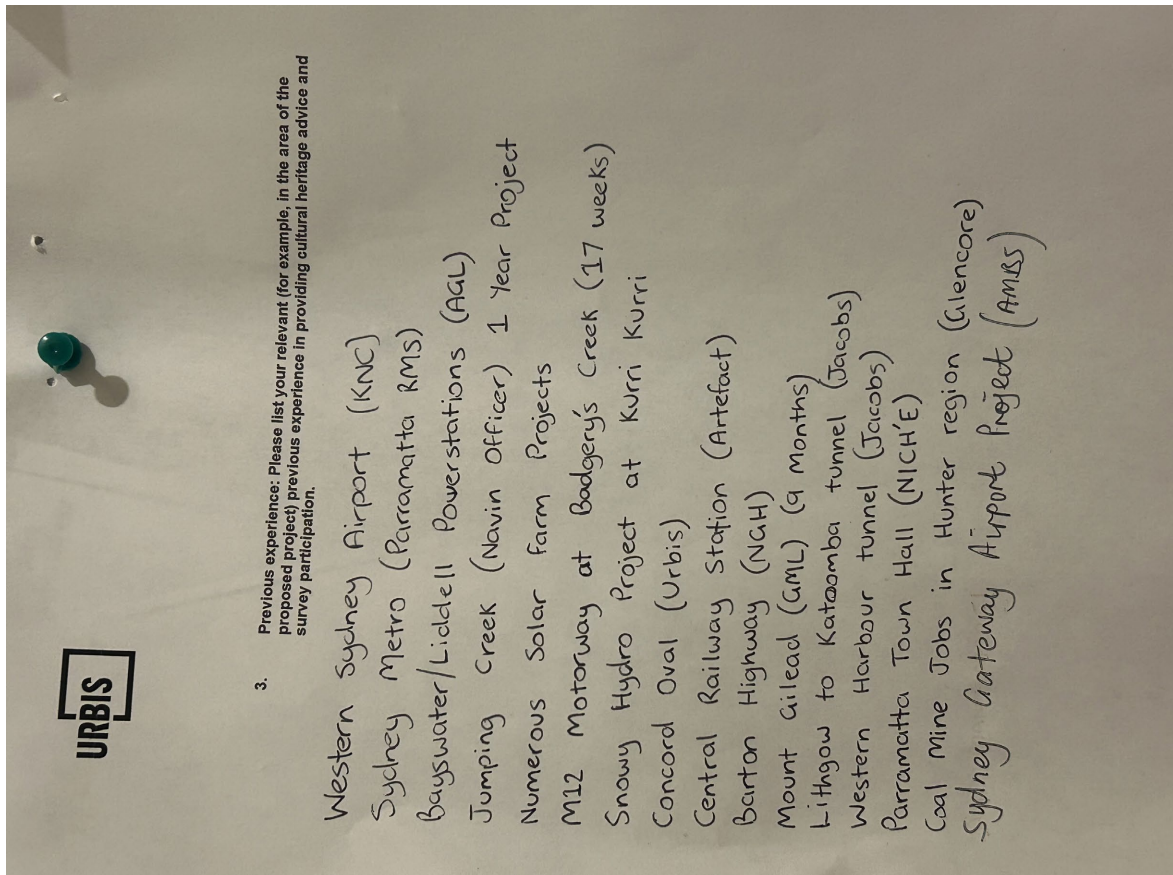 URBIS
3. Previous experience: Please list your relevant (for example, in the area of the
proposed project) previous experience in providing cultural heritage advice and
survey participation.
Western Sydney Airport (KNC)
Sydney Metro (Parramatta RMS)
Bayswater/Liddell Powerstations (AGL)
Jumping Creek (Navin Officer) 1 Year Project
Numerous Solar Farm Projects
M12 Motorway at Badgery's Creek (17 weeks)
Snowy Hydro Project at Kurri Kurri
Concord Oval (Urbis)
Central Railway Station (Artefact)
Barton Highway (NGH)
Mount Gilead (GML) (9 Months)
Lithgow to Katoomba tunnel (Jacobs)
Western Harbour tunnel (Jacobs)
Parramatta Town Hall (NICH'E)
Coal Mine Jobs in Hunter region (Glencore)
Sydney Gateway Airport Project (AMBS)